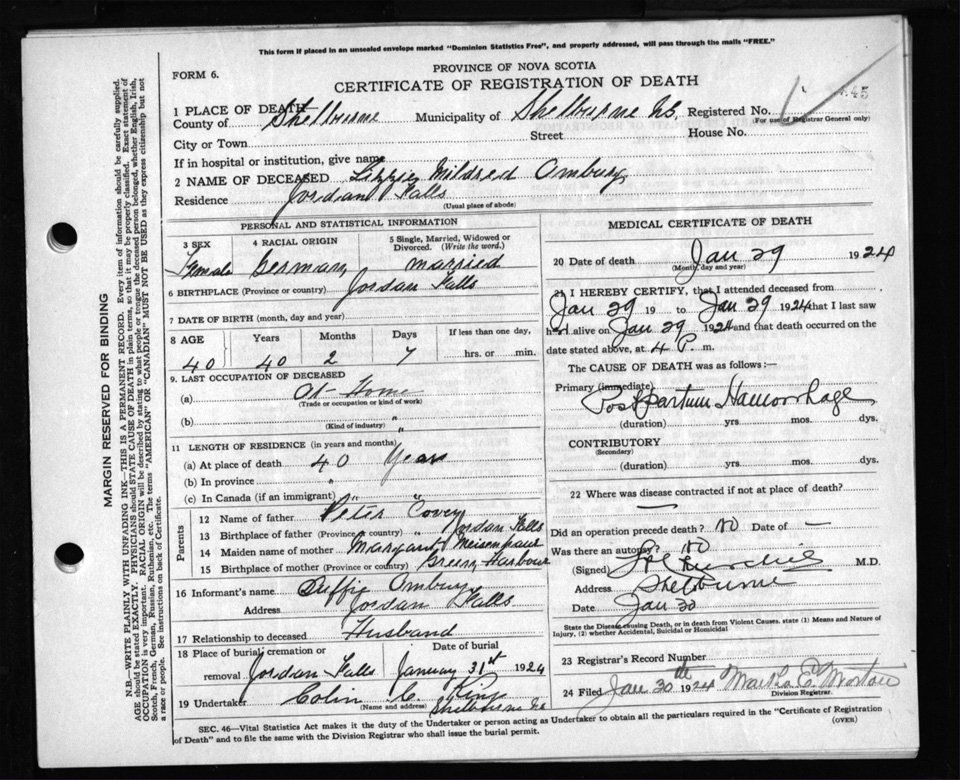 This form if placed in an unsealed envelope marked "Dominion Statistics Free", and properly addressed, will pass through the mails "FREE."
FORM 6.
PROVINCE OF NOVA SCOTIA
CERTIFICATE OF REGISTRATION OF DEATH
45
1 PLACE OF DEATH
County of Shelburne Municipality of Shelburne N.S. Registered No.
(For use of Registrar General only)
City or Town Street House No.
If in hospital or institution, give name
2 NAME OF DECEASED Lizzie Mildred Ombury
Residence Jordan Falls
(Usual place of abode)
PERSONAL AND STATISTICAL INFORMATION
3 SEX 4 RACIAL ORIGIN 5 Single, Married, Widowed or Divorced. (Write the word.)
Female German married
6 BIRTHPLACE (Province or country) Jordan Falls
7 DATE OF BIRTH (month, day and year)
8 AGE Years Months Days If less than one day,
40 40 2 7 hrs. or min.
9. LAST OCCUPATION OF DECEASED
(a) At Home
(Trade or occupation or kind of work)
(b) "
(Kind of industry)
11 LENGTH OF RESIDENCE (in years and months)
(a) At place of death 40 Years
(b) In province " "
(c) In Canada (if an immigrant) " "
Parents
12 Name of father Peter Covey
13 Birthplace of father (Province or country) Jordan Falls
14 Maiden name of mother Margaret
15 Birthplace of mother (Province or country) Green Harbour
16 Informant's name Ombury
Address Jordan Falls
17 Relationship to deceased Husband
18 Place of burial cremation or removal Date of burial
Jordan Falls January 31st 1924
19 Undertaker Colin C. King
(Name and address) Shelburne N.S.
MEDICAL CERTIFICATE OF DEATH
20 Date of death Jan 29 1924
(Month, day and year)
21 I HEREBY CERTIFY, that I attended deceased from
Jan 29 19 to Jan 29 1924 that I last saw
her alive on Jan 29 1924 and that death occurred on
date stated above, at 4 P. m.
The CAUSE OF DEATH was as follows:—
Primary (immediate)
Postpartum Haemorrhage
(duration) yrs. mos. dys.
CONTRIBUTORY
(Secondary)
(duration) yrs. mos. dys.
22 Where was disease contracted if not at place of death?
—
Did an operation precede death? no Date of —
Was there an autopsy? no
(Signed) M.D.
Address Shelburne
Date Jan 30
State the Disease causing Death, or in death from Violent Causes, state (1) Means and Nature of
Injury, (2) whether Accidental, Suicidal or Homicidal
23 Registrar's Record Number
24 Filed Jan 30th 1924 Martha E. Morton
Division Registrar.
SEC. 46—Vital Statistics Act makes it the duty of the Undertaker or person acting as Undertaker to obtain all the particulars required in the "Certificate of Registration
of Death" and to file the same with the Division Registrar who shall issue the burial permit.
(OVER)
MARGIN RESERVED FOR BINDING
N.B.—WRITE PLAINLY WITH UNFADING INK—THIS IS A PERMANENT RECORD. Every item of information should be carefully supplied.
AGE should be stated EXACTLY. PHYSICIANS should STATE CAUSE OF DEATH in plain terms, so that it may be properly classified. Exact statement of
OCCUPATION is very important. RACIAL ORIGIN will be described by stating to what people or tongue the deceased person belonged, whether English, Irish,
Scotch, French, German, Russian, Ruthenian, etc. The terms "AMERICAN" or "CANADIAN" MUST NOT BE USED as they express citizenship but not
a race or people. See instructions on back of Certificate.